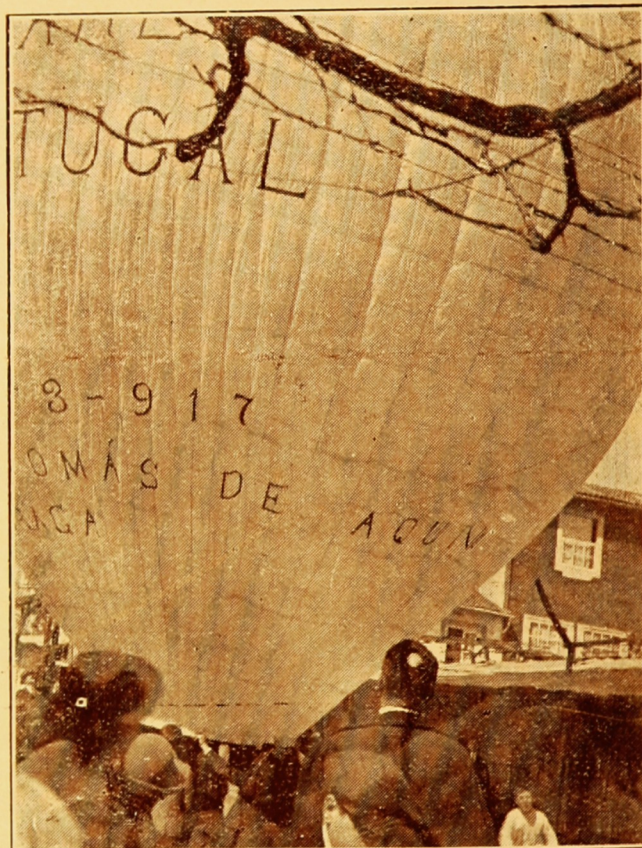 TUGAL
3-917
OMÁS DE AQUN
UGA